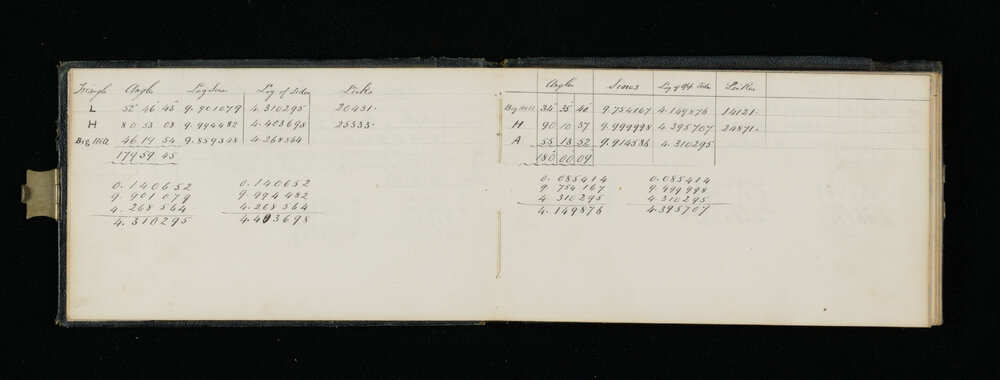 Triangle Angle Log Sines Log of Sides Links
L 52° 46' 43" 9.901079 4.310295 20431.
H 80 53 08 9.994482 4.403698 25333.
Big Hill 46 19 54 9.859348 4.268564
179 59 45
0.140652 0.140652
9.901079 9.994482
4.268564 4.268564
4.310295 4.403698
Angle Sines Log of Opp Sides Links
Big Hill 34° 35' 40" 9.754167 4.149876 14121.
H 90 10 37 9.999998 4.395707 24871.
A 55 13 52 9.914586 4.310295
180° 00' 09"
0.085414 0.085414
9.754167 9.999998
4.310295 4.310295
4.149876 4.395707